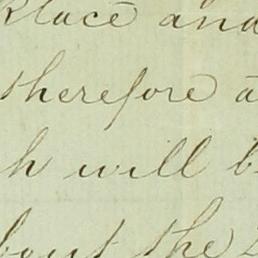 place and
therefore a
h will b
bout the